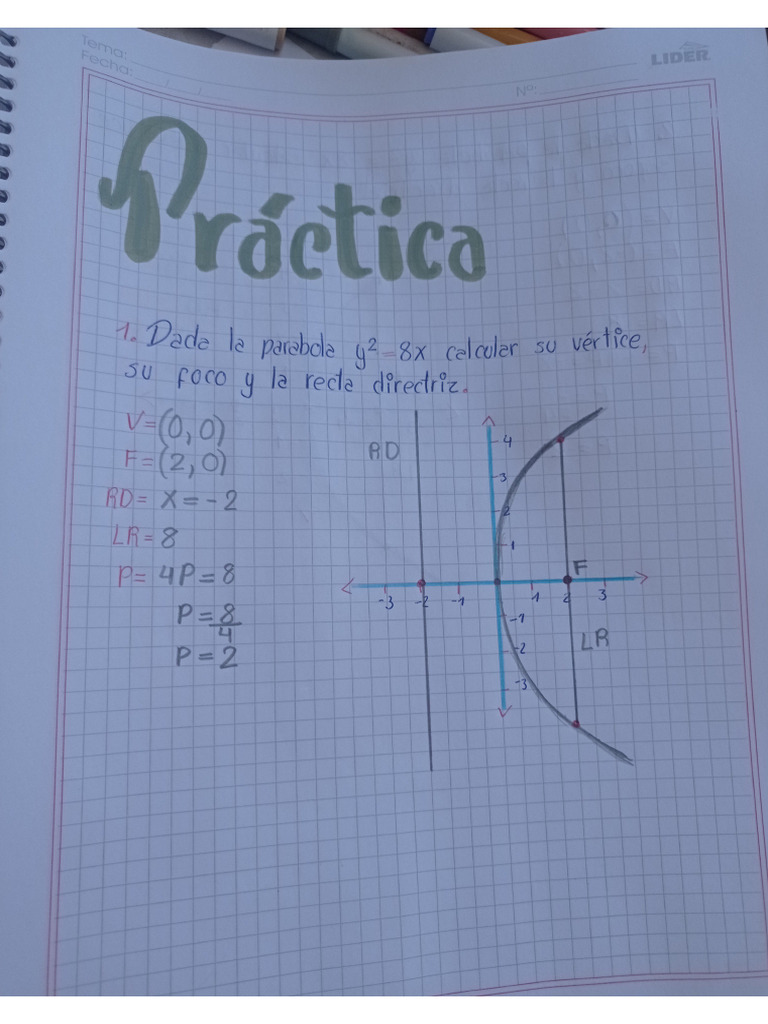 Tema:
Fecha: / /
LIDER
Nº:
Práctica
1. Dada la parabola y² = 8x calcular su vértice,
su foco y la recta directriz.
V=(0,0)
F=(2,0)
RD= x=-2
LR= 8
P= 4P=8
P=8/4
P=2
RD
4
3
2
1
F
-3 -2 -1 1 2 3
-1
-2
-3
LR